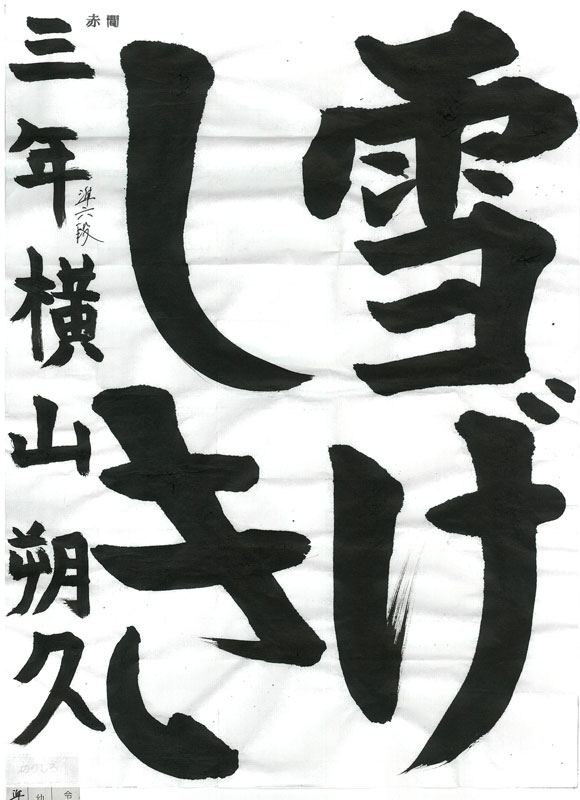 雪げ
しき
三年横山朔久
準六段
赤間
のりしろ
準
幼
令